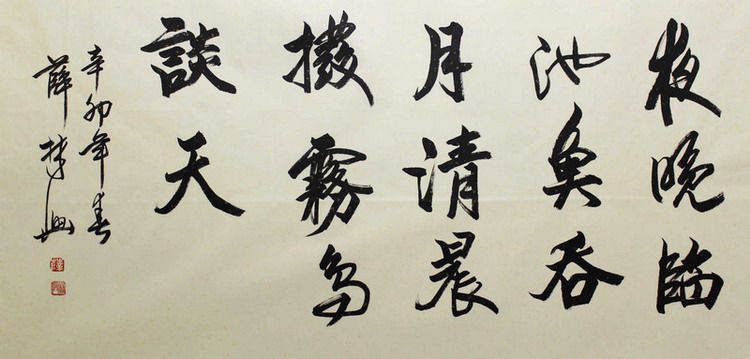 夜晚臨
池魚吞
月清晨
撥霧鳥
談天
辛卯年春
薛林興